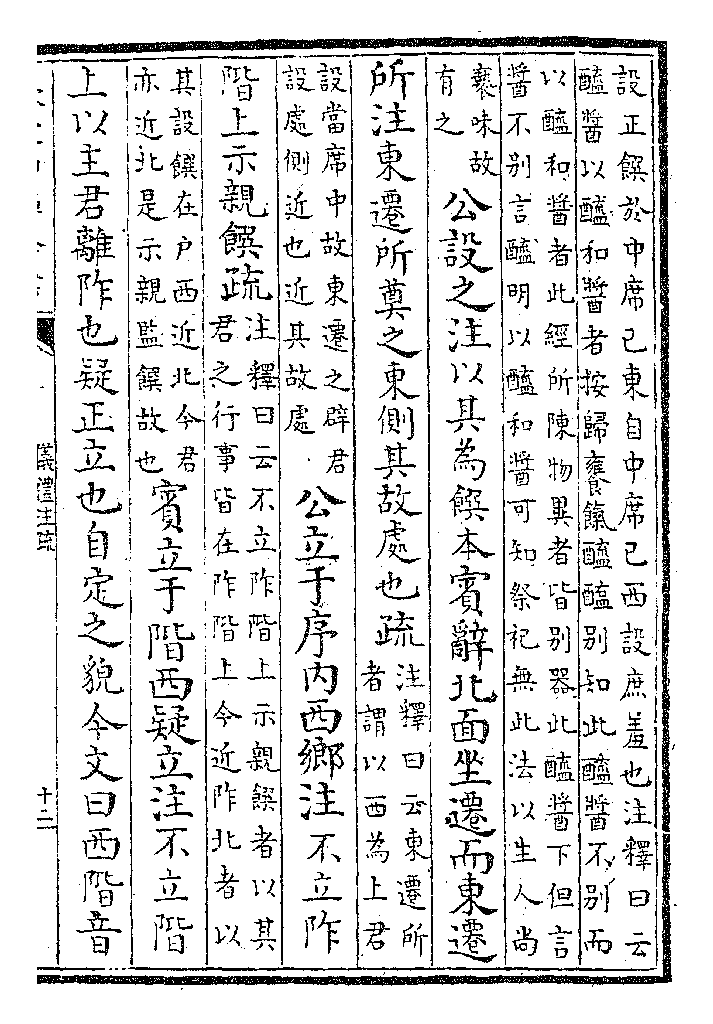 設正饌於中席已東自中席已西設庶羞也注釋曰云
醯醬以醯和醬者按歸饔餼醯醢别知此醯醬不别而
以醯和醬者此經所陳物異者皆别器此醯醬下但言
醬不别言醯明以醯和醬可知祭祀無此法以生人尚
褻味故
有之
公設之注以其為饌本賓辭北面坐遷而東遷
所注東遷所奠之東側其故處也疏
注釋曰云東遷所
者謂以西為上君
設當席中故東遷之辟君
設處側近也近其故處
公立于序内西鄉注不立阼
階上示親饌疏
注釋曰云不立阼階上示親饌者以其
君之行事皆在阼階上今近阼北者以
其設饌在户西近北今君
亦近北是示親監饌故也
賓立于階西疑立注不立階
上以主君離阼也疑正立也自定之貌今文曰西階音
儀禮注疏
十二